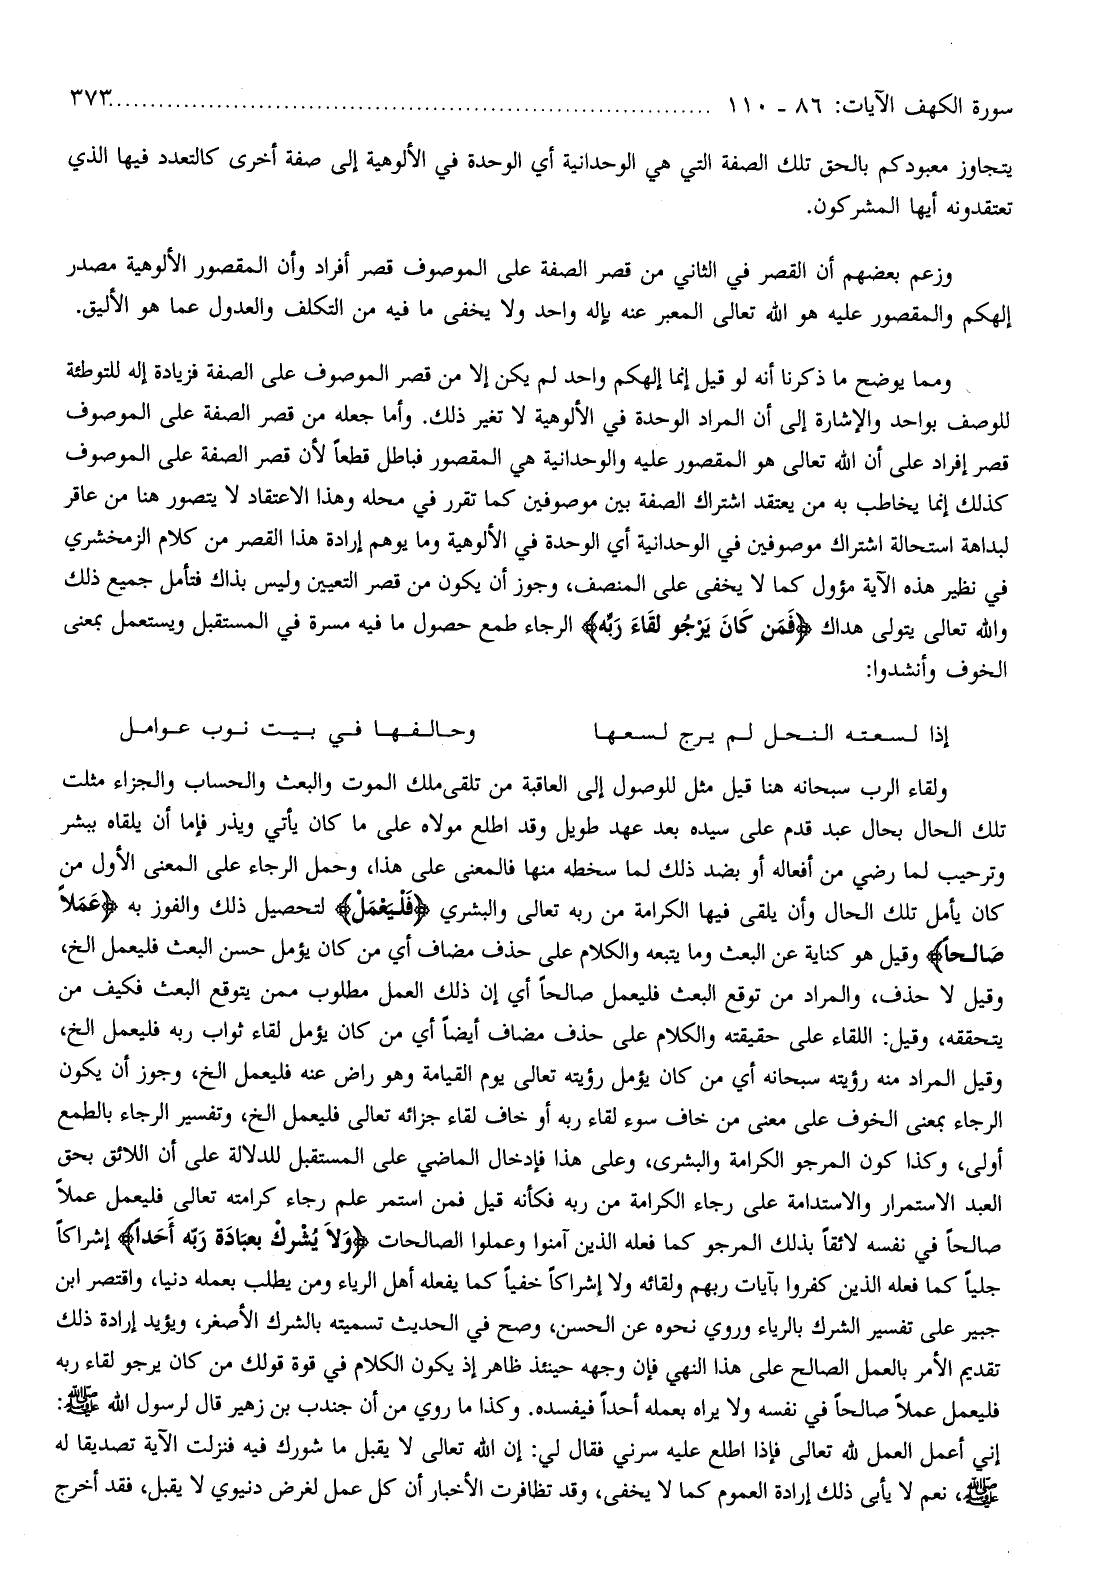 سورة الكهف الآيات: ٨٦ ـ ١١٠ ........................................................................ ٣٧٣
يتجاوز معبودكم بالحق تلك الصفة التي هي الوحدانية أي الوحدة في الألوهية إلى صفة أخرى كالتعدد فيها الذي
تعتقدونه أيها المشركون.
وزعم بعضهم أن القصر في الثاني من قصر الصفة على الموصوف قصر أفراد وأن المقصور الألوهية مصدر
إلهكم والمقصور عليه هو الله تعالى المعبر عنه بإله واحد ولا يخفى ما فيه من التكلف والعدول عما هو الأليق.
ومما يوضح ما ذكرنا أنه لو قيل إنما إلهكم واحد لم يكن إلا من قصر الموصوف على الصفة فزيادة إله للتوطئة
للوصف بواحد والإشارة إلى أن المراد الوحدة في الألوهية لا تغير ذلك. وأما جعله من قصر الصفة على الموصوف
قصر إفراد على أن الله تعالى هو المقصور عليه والوحدانية هي المقصور فباطل قطعاً لأن قصر الصفة على الموصوف
كذلك إنما يخاطب به من يعتقد اشتراك الصفة بين موصوفين كما تقرر في محله وهذا الاعتقاد لا يتصور هنا من عاقر
لبداهة استحالة اشتراك موصوفين في الوحدانية أي الوحدة في الألوهية وما يوهم إرادة هذا القصر من كلام الزمخشري
في نظير هذه الآية مؤول كما لا يخفى على المنصف، وجوز أن يكون من قصر التعيين وليس بذاك فتأمل جميع ذلك
والله تعالى يتولى هداك ﴿فَمَن كَانَ يَرْجُو لقَاءَ رَبِّه﴾ الرجاء طمع حصول ما فيه مسرة في المستقبل ويستعمل بمعنى
الخوف وأنشدوا:
إذا لسعته النحل لم يرج لسعها وحالفها في بيت نوب عوامل
ولقاء الرب سبحانه هنا قيل مثل للوصول إلى العاقبة من تلقي ملك الموت والبعث والحساب والجزاء مثلت
تلك الحال بحال عبد قدم على سيده بعد عهد طويل وقد اطلع مولاه على ما كان يأتي ويذر فإما أن يلقاه ببشر
وترحيب لما رضي من أفعاله أو بضد ذلك لما سخطه منها فالمعنى على هذا، وحمل الرجاء على المعنى الأول من
كان يأمل تلك الحال وأن يلقى فيها الكرامة من ربه تعالى والبشري ﴿فَلْيَعْمَلْ﴾ لتحصيل ذلك والفوز به ﴿عَمَلاً
صَالحاً﴾ وقيل هو كناية عن البعث وما يتبعه والكلام على حذف مضاف أي من كان يؤمل حسن البعث فليعمل الخ،
وقيل لا حذف، والمراد من توقع البعث فليعمل صالحاً أي إن ذلك العمل مطلوب ممن يتوقع البعث فكيف من
يتحققه، وقيل: اللقاء على حقيقته والكلام على حذف مضاف أيضاً أي من كان يؤمل لقاء ثواب ربه فليعمل الخ،
وقيل المراد منه رؤيته سبحانه أي من كان يؤمل رؤيته تعالى يوم القيامة وهو راض عنه فليعمل الخ، وجوز أن يكون
الرجاء بمعنى الخوف على معنى من خاف سوء لقاء ربه أو خاف لقاء جزائه تعالى فليعمل الخ، وتفسير الرجاء بالطمع
أولى، وكذا كون المرجو الكرامة والبشرى، وعلى هذا فإدخال الماضي على المستقبل للدلالة على أن اللائق بحق
العبد الاستمرار والاستدامة على رجاء الكرامة من ربه فكأنه قيل فمن استمر علم رجاء كرامته تعالى فليعمل عملاً
صالحاً في نفسه لائقاً بذلك المرجو كما فعله الذين آمنوا وعملوا الصالحات ﴿وَلاَ يُشْركْ بعبَادَة رَبِّه أَحَداً﴾ إشراكاً
جلياً كما فعله الذين كفروا بآيات ربهم ولقائه ولا إشراكاً خفياً كما يفعله أهل الرياء ومن يطلب بعمله دنيا، واقتصر ابن
جبير على تفسير الشرك بالرياء وروي نحوه عن الحسن، وصح في الحديث تسميته بالشرك الأصغر، ويؤيد إرادة ذلك
تقديم الأمر بالعمل الصالح على هذا النهي فإن وجهه حينئذ ظاهر إذ يكون الكلام في قوة قولك من كان يرجو لقاء ربه
فليعمل عملاً صالحاً في نفسه ولا يراه بعمله أحداً فيفسده. وكذا ما روي من أن جندب بن زهير قال لرسول الله ﷺ:
إني أعمل العمل لله تعالى فإذا اطلع عليه سرني فقال لي: إن الله تعالى لا يقبل ما شورك فيه فنزلت الآية تصديقا له
ﷺ، نعم لا يأبى ذلك إرادة العموم كما لا يخفى، وقد تظافرت الأخبار أن كل عمل لغرض دنيوي لا يقبل، فقد أخرج